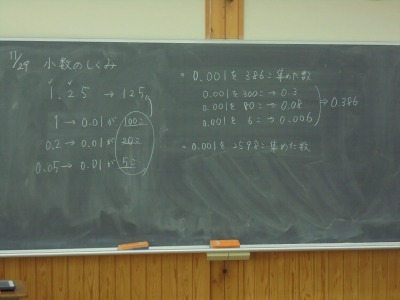 11/29 小数のしくみ
1.25 → 125
1 → 0.01が 100こ
0.2 → 0.01が 20こ
0.05 → 0.01が 5こ
0.001を 386こ集めた数
0.001を 300こ → 0.3
0.001を 80こ → 0.08
0.001を 6こ → 0.006
→ 0.386
0.001を 2598こ集めた数